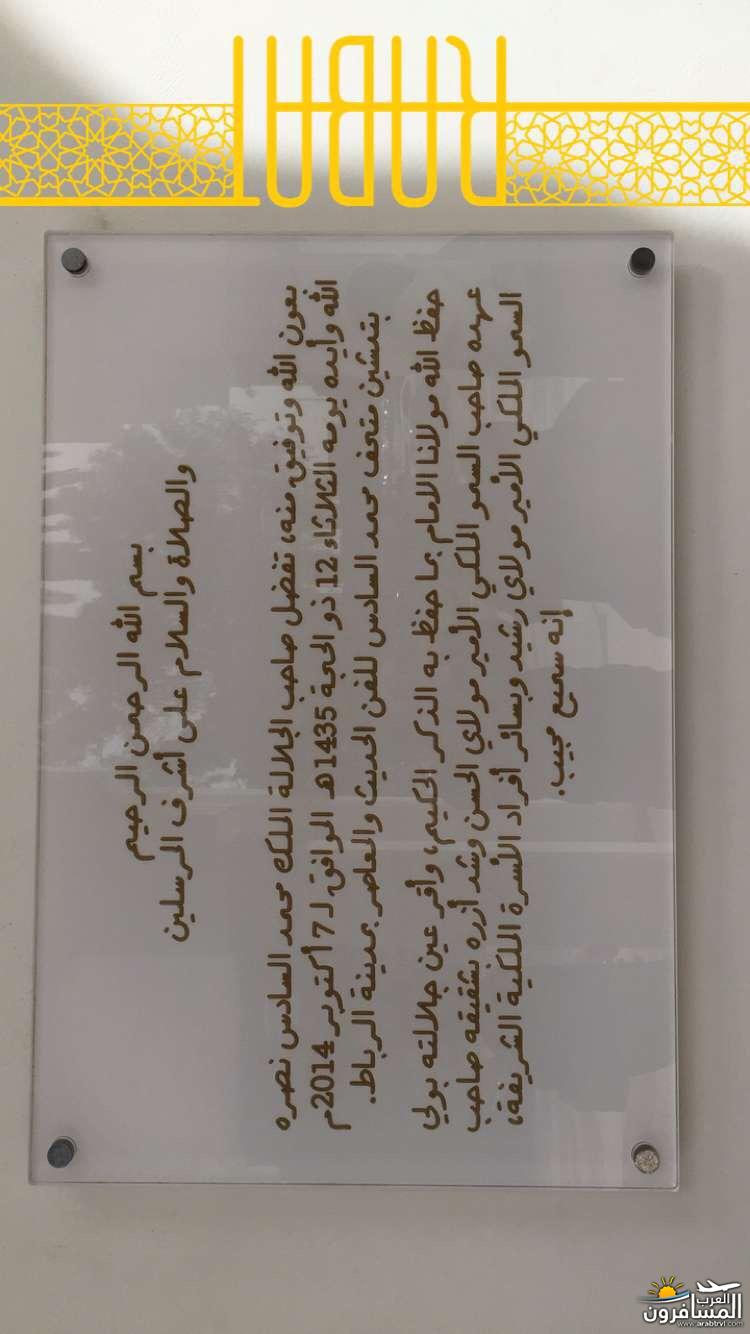 RABAT
بسم الله الرحمن الرحيم
والصلاة والسلام على أشرف المرسلين
بعون الله وتوفيق منه، تفضل صاحب الجلالة الملك محمد السادس نصره
الله وأيده يومه الثلاثاء 12 ذو الحجة 1435هـ الموافق لـ 7 أكتوبر 2014م
بتدشين متحف محمد السادس للفن الحديث والمعاصر بمدينة الرباط.
حفظ الله مولانا الامام بما حفظ به الذكر الحكيم، وأقر عين جلالته بولي
عهده صاحب السمو الملكي الأمير مولاي الحسن وشد أزره بشقيقه صاحب
السمو الملكي الأمير مولاي رشيد وبسائر أفراد الأسرة الملكية الشريفة،
إنه سميع مجيب.
العرب
المسافرون
www.arabtrvl.com